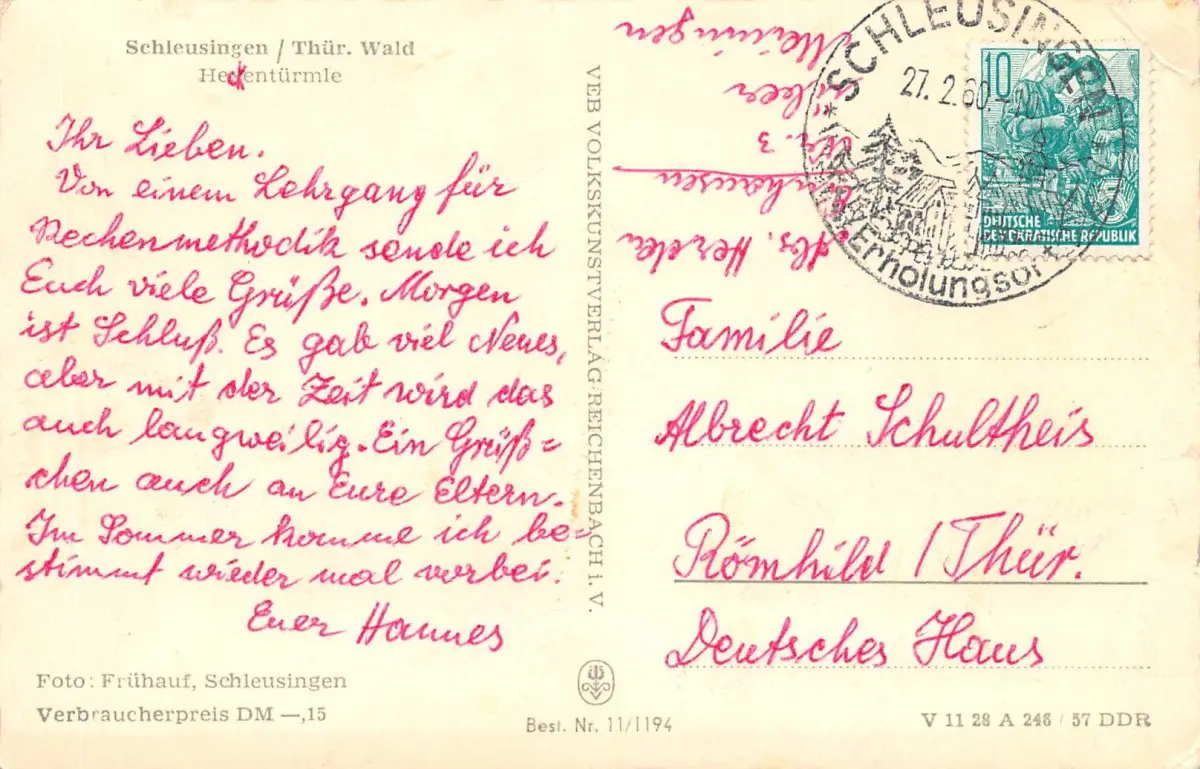 Schleusingen / Thür. Wald
Hexentürmle
Ihr Lieben.
Von einem Lehrgang für
Rechenmethodik sende ich
Euch viele Grüße. Morgen
ist Schluß. Es gab viel Neues,
aber mit der Zeit wird das
auch langweilig. Ein Grüß=
chen auch an Eure Eltern.
Im Sommer komme ich be=
stimmt wieder mal vorbei.
Euer Hannes
Foto: Frühauf, Schleusingen
Verbraucherpreis DM —,15
VEB VOLKSKUNSTVERLAG REICHENBACH i. V.
Best. Nr. 11/1194
Abs.
Nr. 3
über
Meiningen
* SCHLEUSINGEN *
27. 2. 60.
Erholungsort
10
5
DEUTSCHE
DEMOKRATISCHE REPUBLIK
Familie
Albrecht Schultheis
Römhild / Thür.
Deutsches Haus
V 11 28 A 246 / 57 DDR